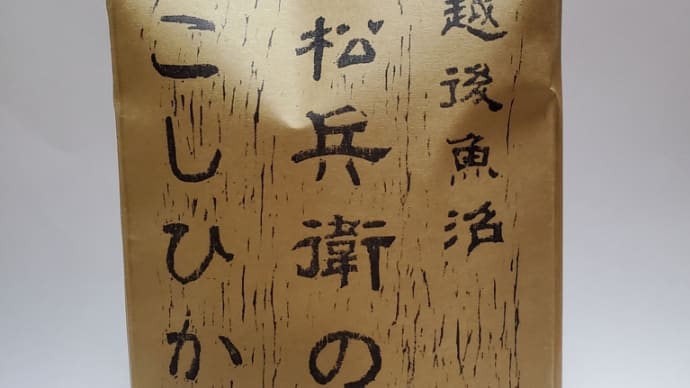 越後魚沼
松兵衛の
こしひか